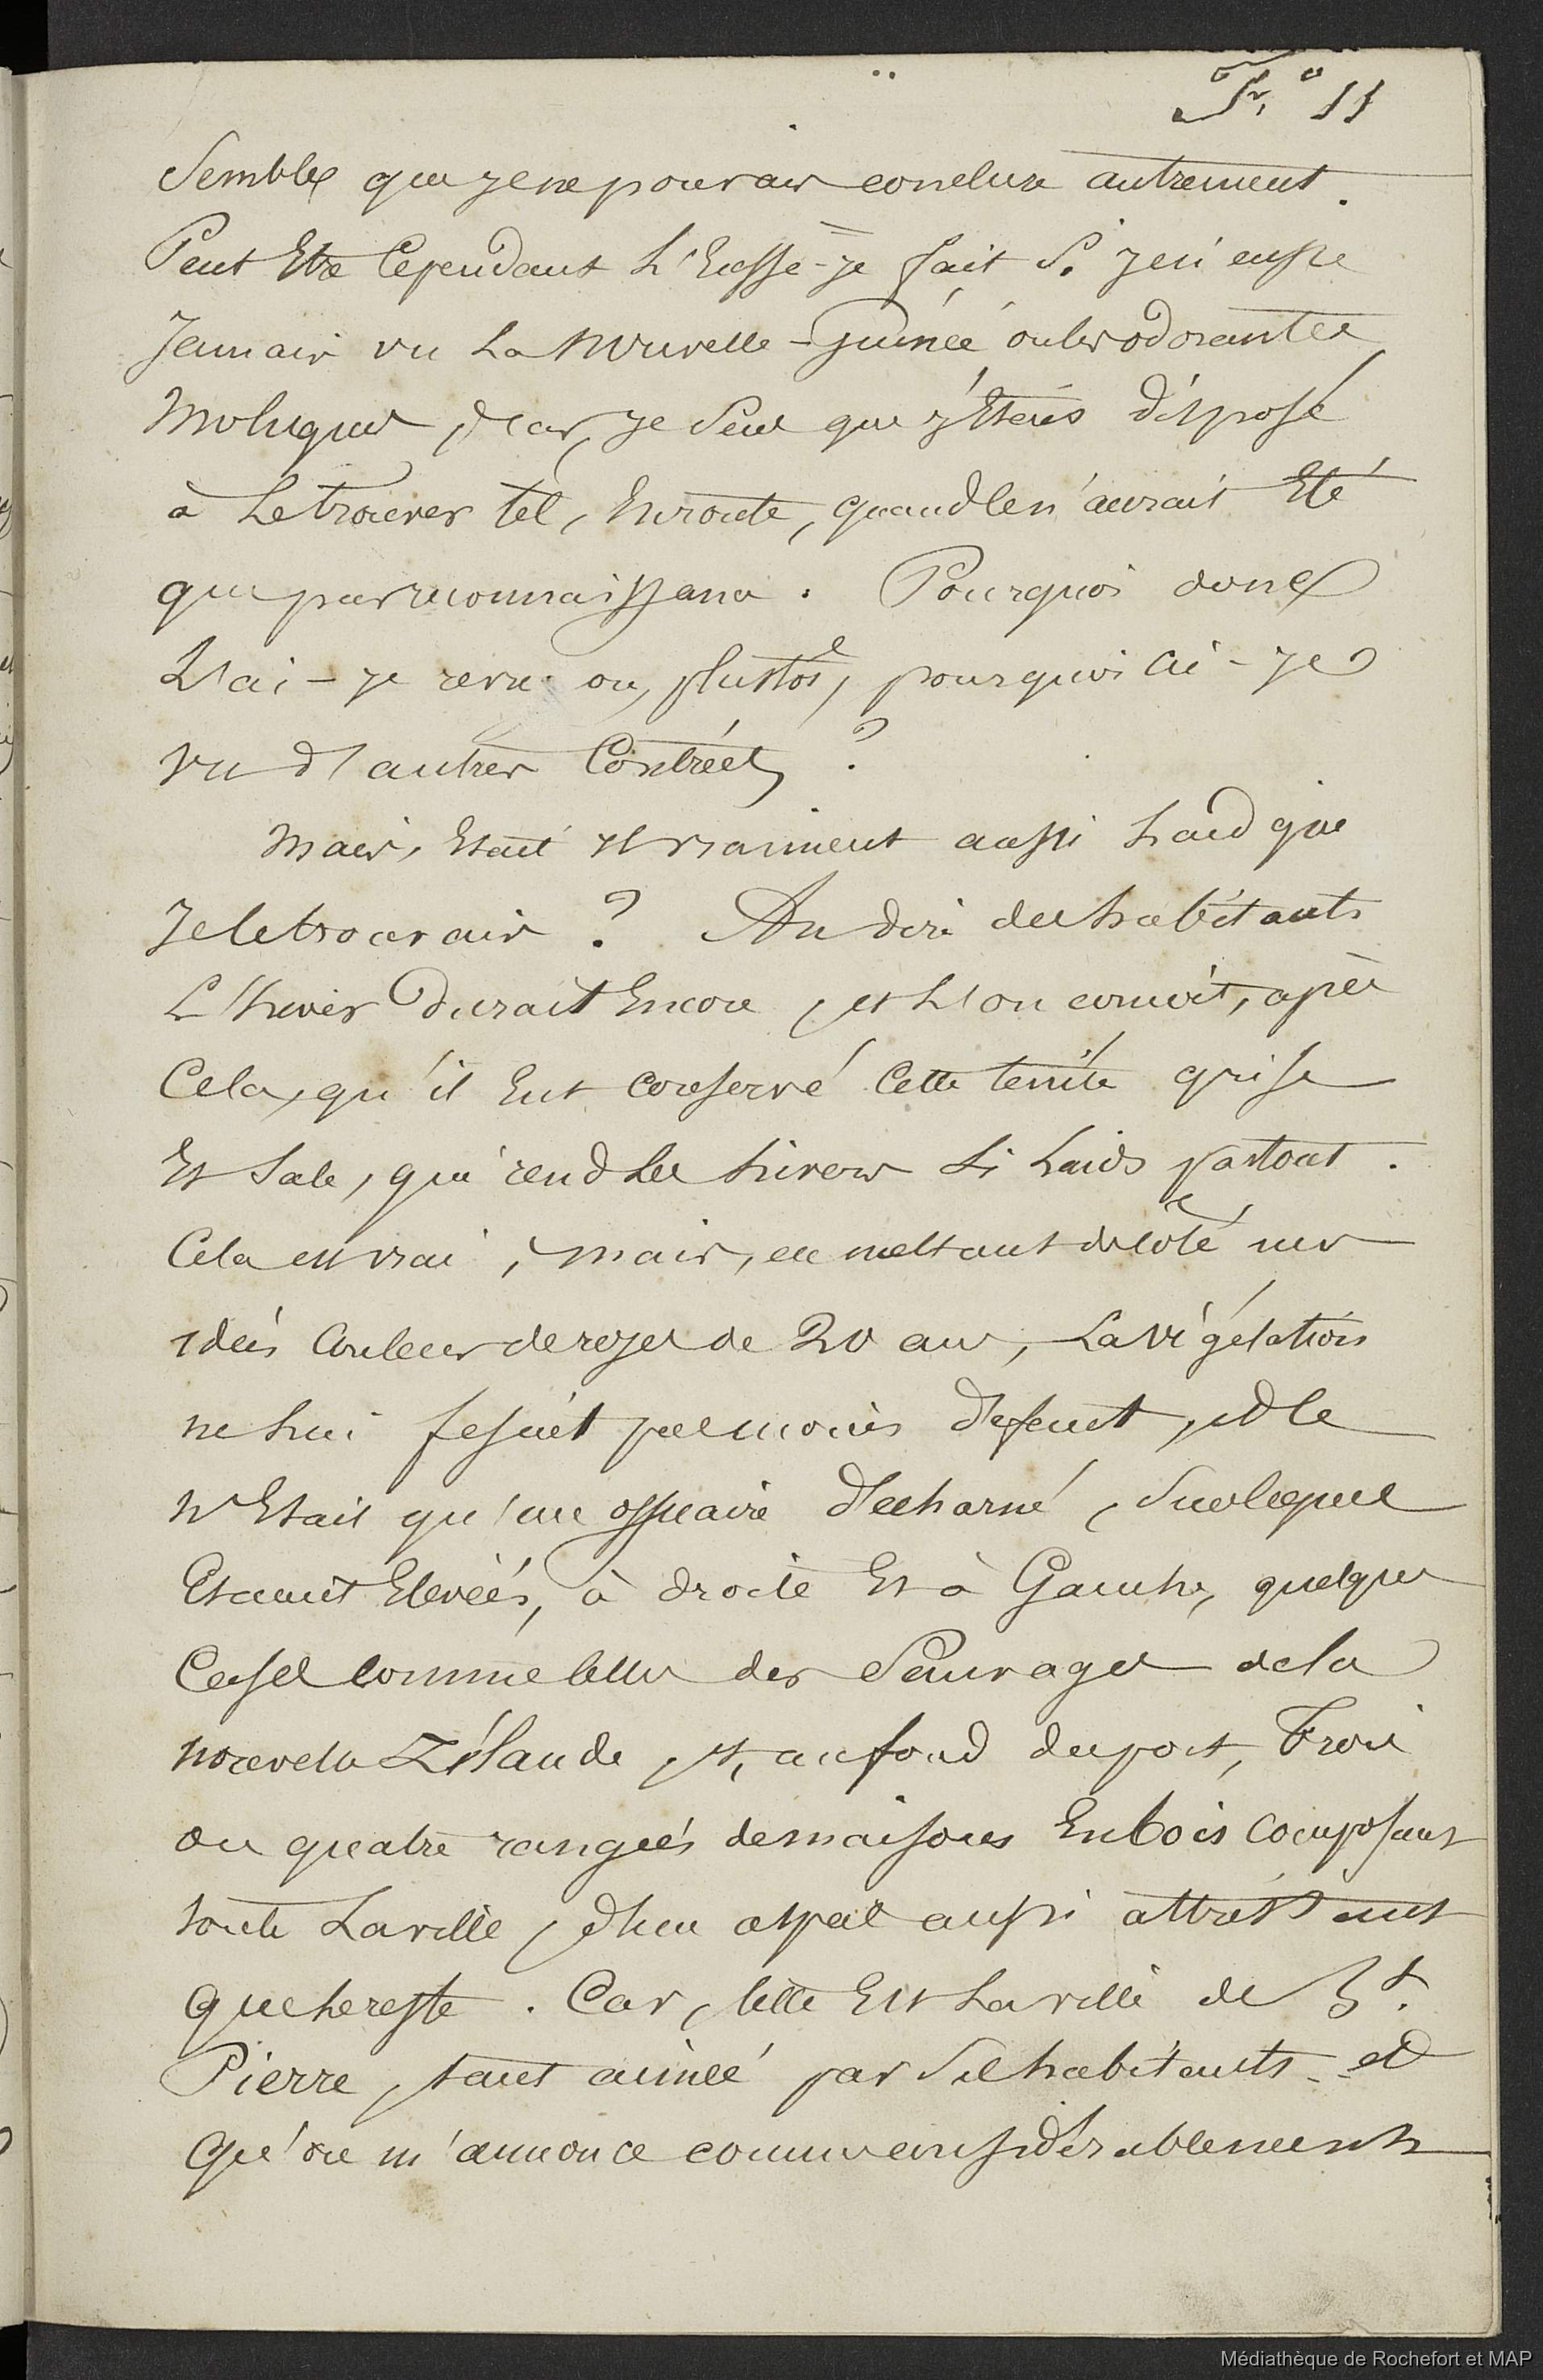 F.° 11
Semble que je ne pouvais conclure autrement.
Peut Etre Cependant L'Eusse-je fait Si je n'eusse
Jamais vu La Nouvelle-Guinée ou les odorantes
Moluques, car, je Sens que j'Etais disposé
à Le trouver tel, En route, quand le n'aurait Eté
que par reconnaissance. Pourquoi donc
L'ai-je revu ou, plustôt, pourquoi ai-je
vu d'autres Contrées ?
Mais, Etait il vraiment aussi Laid que
Je le trouvais ? Au dire des habitants
L'hiver durait Encore, et L'on conçoit, après
Cela, qu'il Eut conservé Cette teinte grise
Et Sale, qui rend Les hivers Si Laids partout.
Cela est vrai, mais, en mettant de côté mes
idées Couleur de roses de 20 ans, La végétation
ne Lui fesait pas moins défaut, et le
n'Etait qu'un ossuaire décharné, Sur lequel
Etaient Elevées, à droite Et à Gauche, quelques
Cases comme celles des Sauvages de la
nouvelle Zélande, et, au fond du port, trois
ou quatre rangées de maisons En bois composant
toute La ville, d'un aspect aussi attristant
que Le reste. Car, telle Est La ville de St.
Pierre, tant aimée par Ses habitants - et
qu'on m'annonce comme considérablement